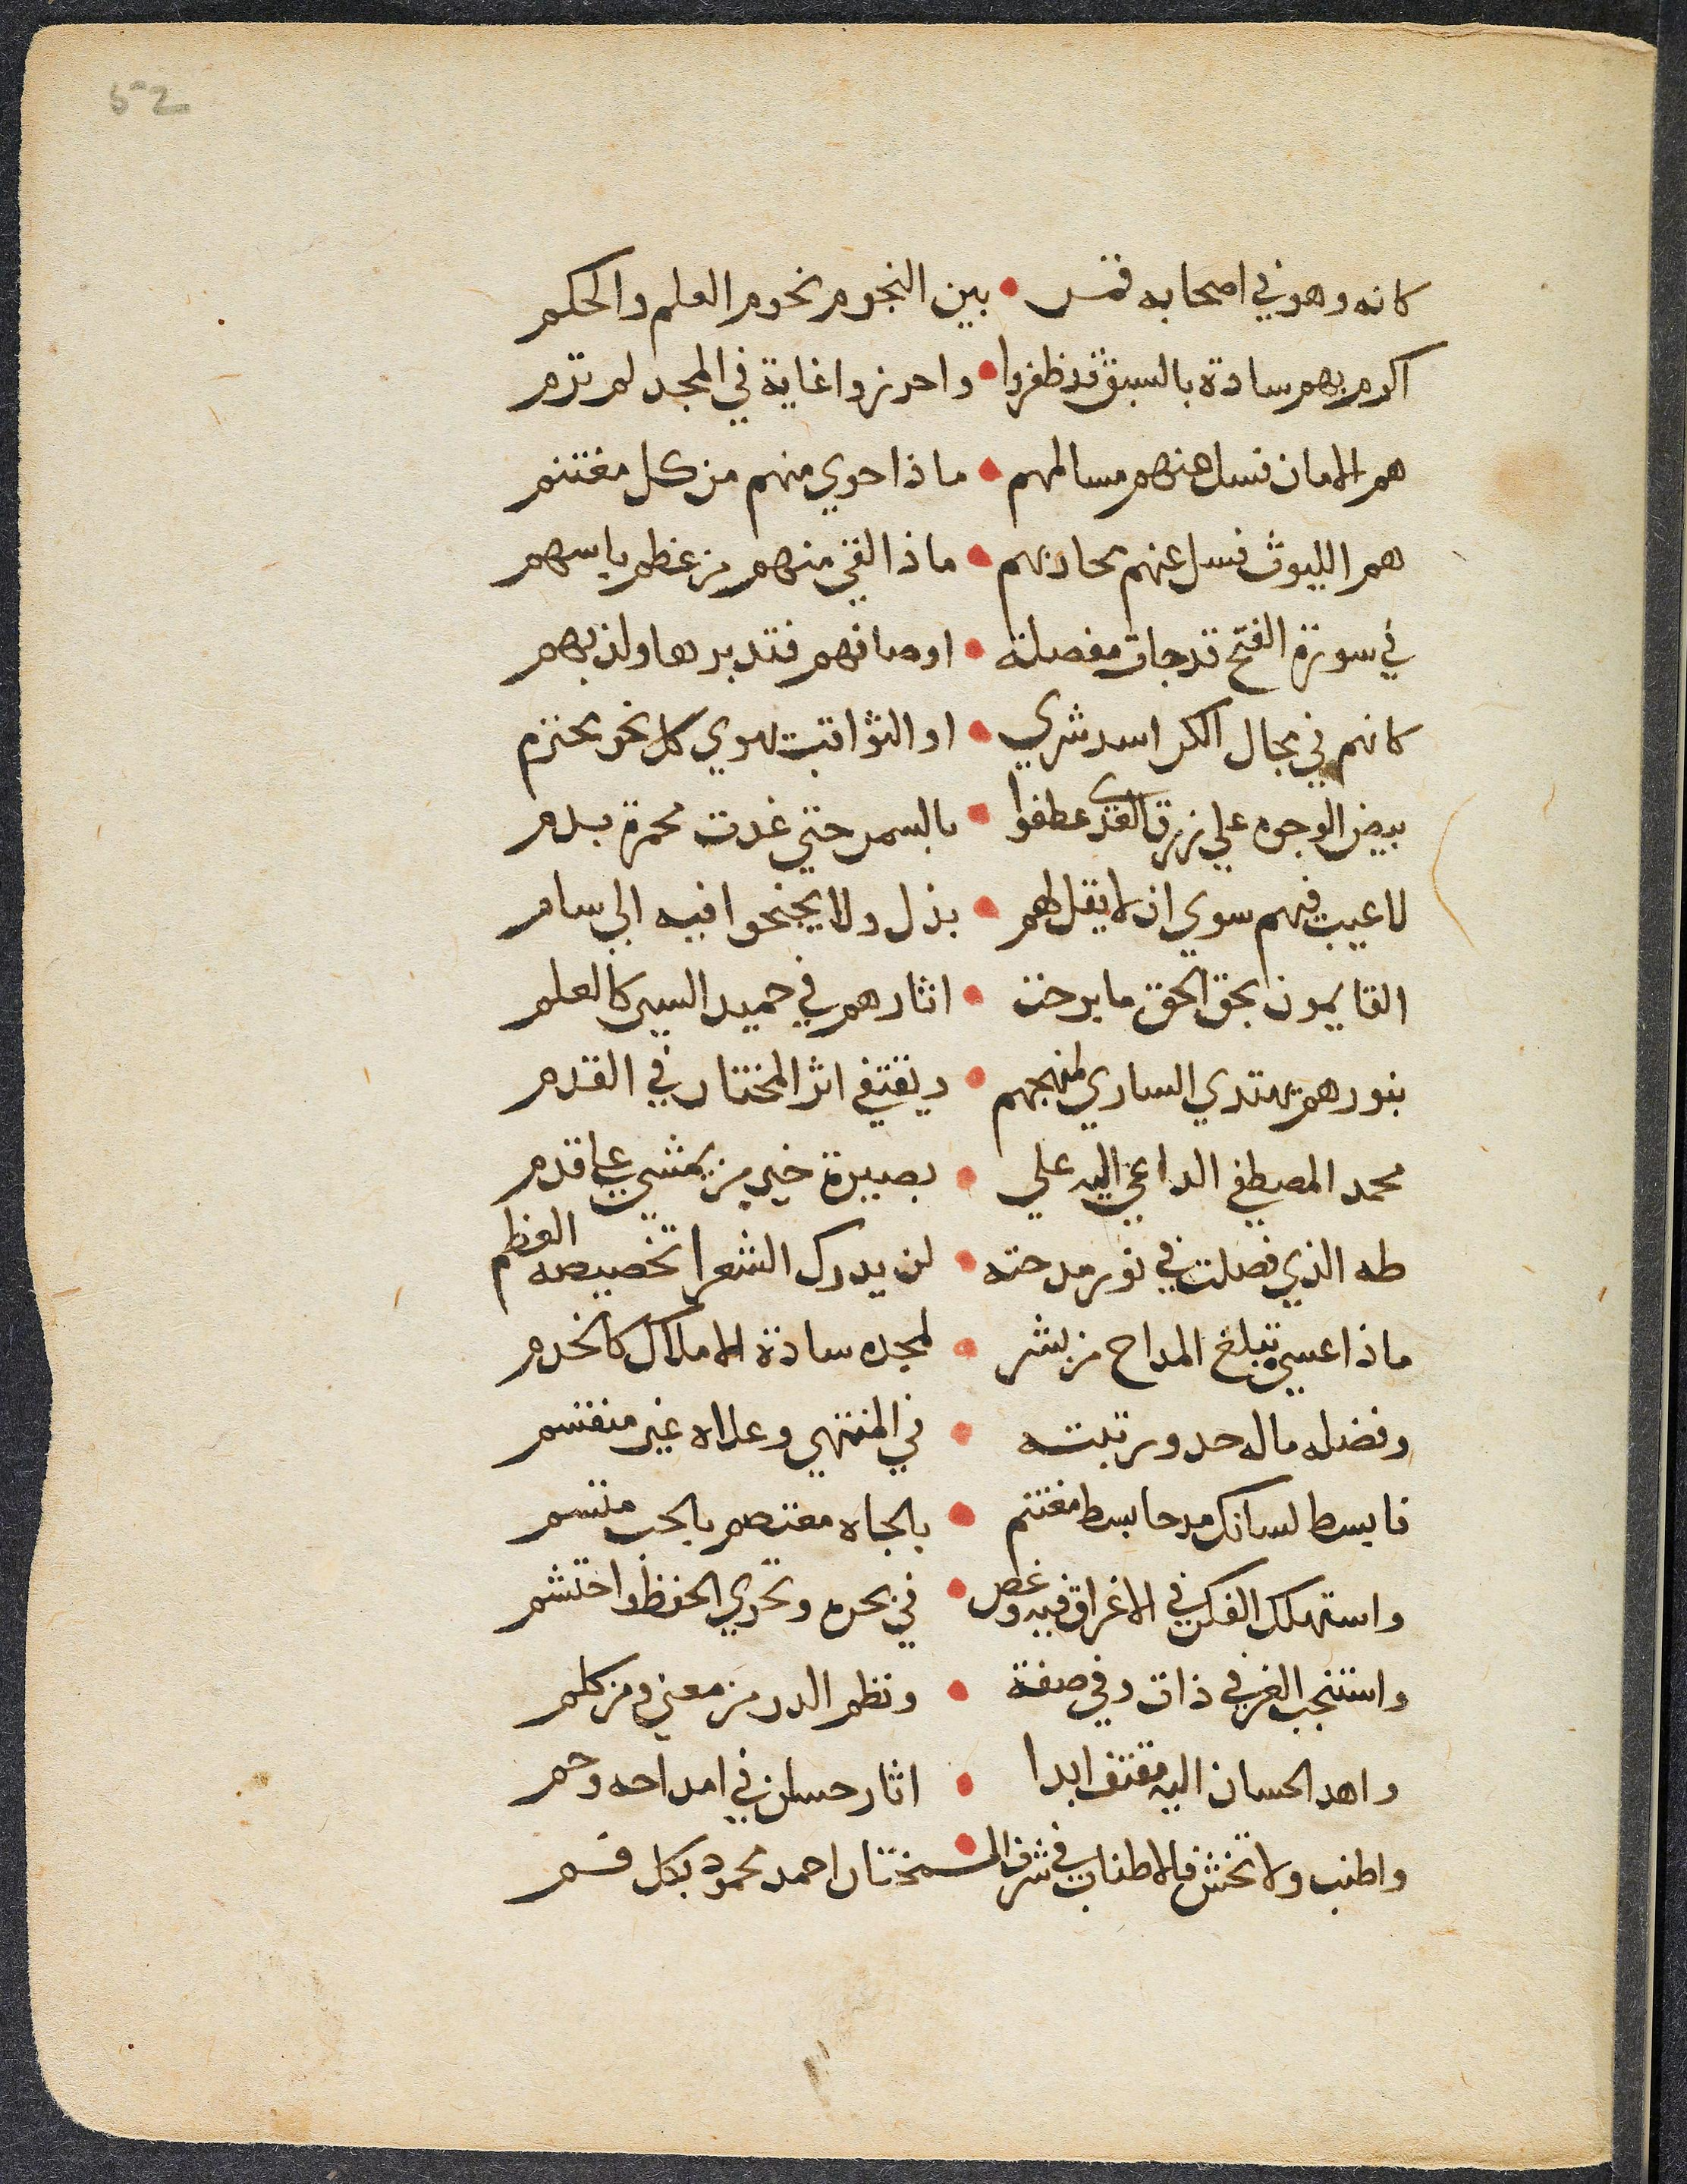 كانه وهو في اصحابه قمر • بين النجوم نجوم العلم والحكم
اكرم بهم سادة بالسبق قد ظفروا • واحرزوا غاية في المجد لم ترم
هم الامان فسل عنهم مسالمهم • ماذا حوي منهم من كل مغتنم
هم الليوث فسل عنهم محاربهم • ماذا لقي منهم من عظم باسهم
في سورة الفتح قد جات مفصلة • اوصافهم فتدبرها ولذ بهم
كانهم في مجال الكر اسد شري • او الثواقب تهوي كل نحو مخترم
بيض الوجوه علي زرق العدى عطفوا • بالسمر حتي غدت محمرة بدم
لا عيب فيهم سوي ان لا يقل لهم • بذل ولا يجنحوا فيه الي سام
القايمون بحق الحق ما برحت • اثارهم في حميد السير كالعلم
بنورهم يهتدي الساري لمنهجهم • ويقتفي اثر المختار في القدم
محمد المصطفي الداعي اليه علي • بصيرة خير من يمشي علي قدم
طه الذي فصلت في نور مدحته • لن يدرك الشعرا تخصيصه العظم
ماذا عسي تبلغ المداح من بشر • لمجده سادة الاملاك كالخدم
وفضله ماله حد ورتبته • في المنتهي وعلاه غير منقسم
فابسط لسانك مدحا بسط مغتنم • بالجاه معتصم بالحب متسم
واستهلك الفكر في الاغراق فيه وغص • في بحره وتحري الحفظ واحتشم
واستنجب الغر في ذات وفي صفة • ونظم الدر من معني ومن كلم
واهد الحسان اليه مقتف ابدا • اثار حسان في امداحه وحم
واطنب ولا تخش فالاطناب في شرف الـ • مختار احمد محمود بكل فم